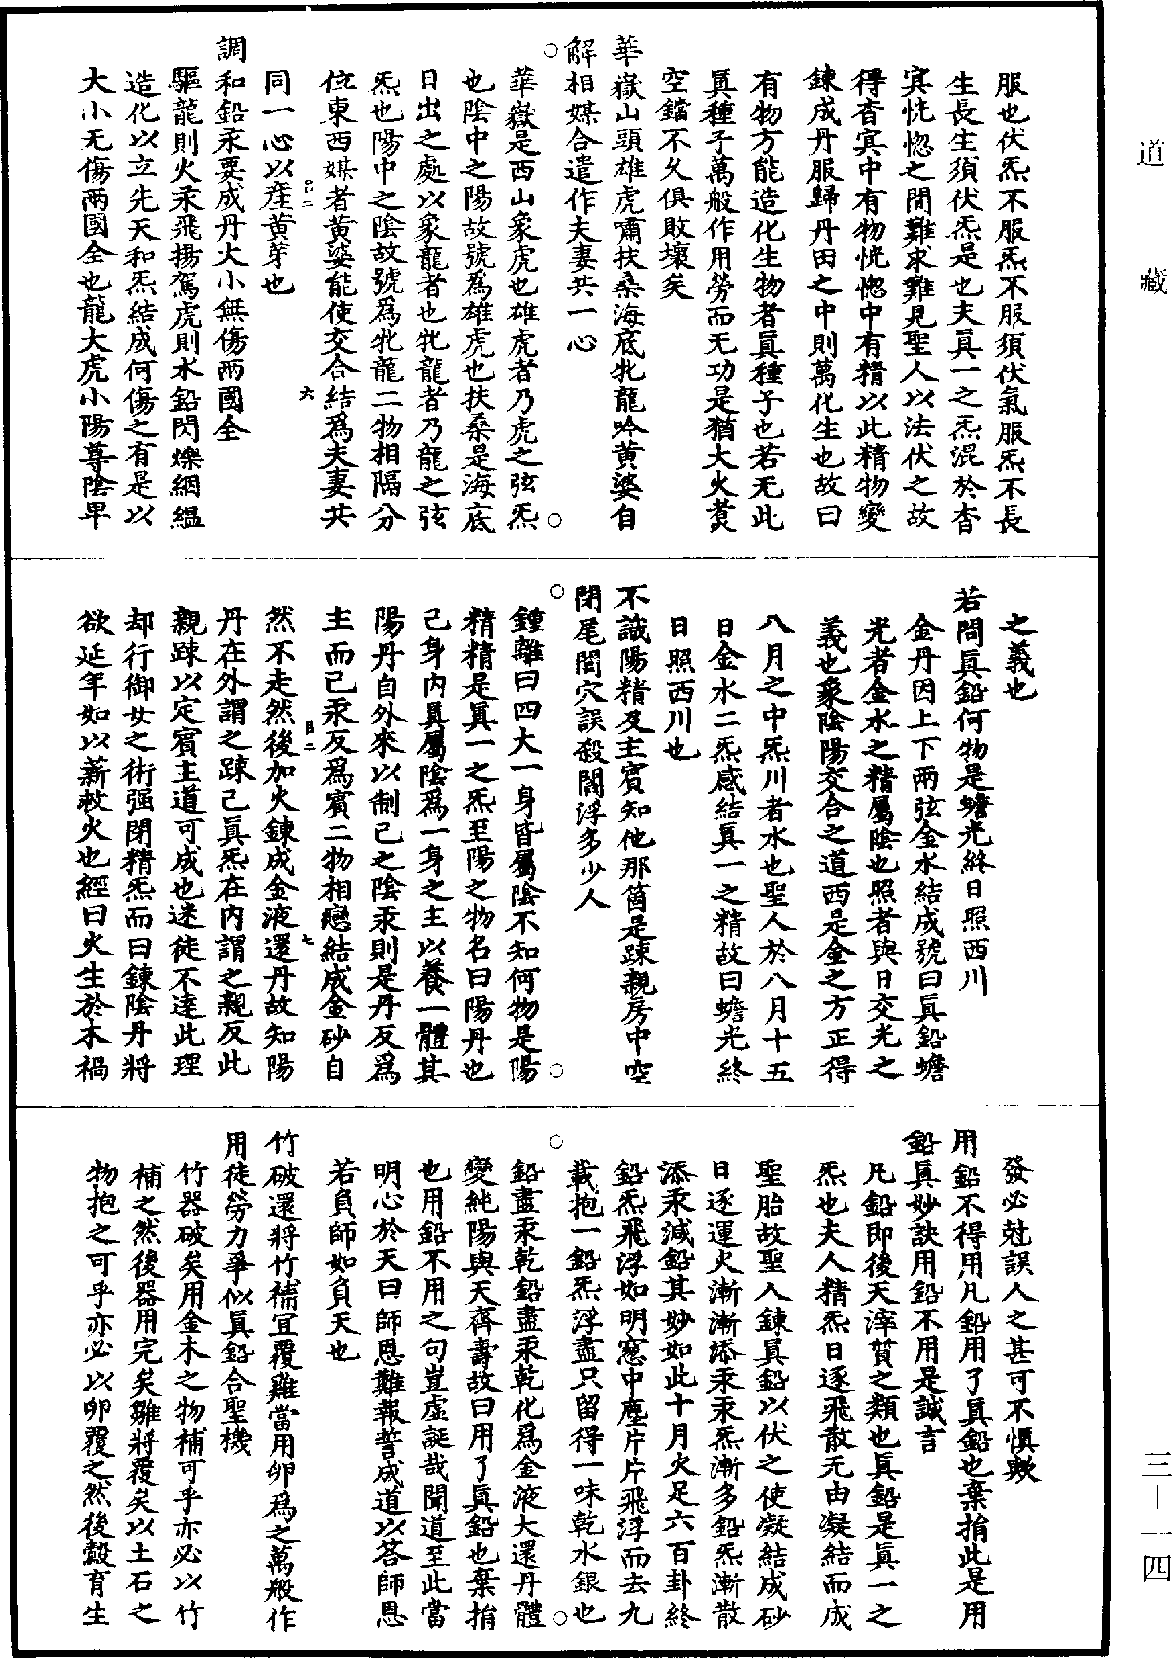 道藏
服也伏炁不服炁不服須伏氣服炁不長
生長生須伏炁是也夫真一之炁混於杳
㝠恍惚之間難求難見聖人以法伏之故
得杳㝠中有物恍惚中有精以此精物變
鍊成丹服歸丹田之中則萬化生也故曰
有物方能造化生物者真種子也若无此
真種子萬般作用勞而无功是猶大火煑
空鐺不久俱敗壞矣
華嶽山頭雄虎嘯扶桑海底牝龍吟黄婆自
解相媒合遣作夫妻共一心
華嶽是西山象虎也雄虎者乃虎之弦炁
也陰中之陽故號爲雄虎也扶桑是海底
日出之處以象龍者也牝龍者乃龍之弦
炁也陽中之陰故號爲牝龍二物相隔分
位東西媒者黄婆能使交合結爲夫妻共
同一心以産黄芽也
六
調和鉛汞要成丹大小無傷兩國全
驅龍則火汞飛揚駕虎則水鉛閃爍絪緼
造化以立先天和炁結成何傷之有是以
大小无傷兩國全也龍大虎小陽尊陰卑
之義也
若問真鉛何物是蟾光終日照西川
金丹因上下兩弦金水結成號曰真鉛蟾
光者金水之精屬陰也照者與日交光之
義也象陰陽交合之道西是金之方正得
八月之中炁川者水也聖人於八月十五
日金水二炁感結真一之精故曰蟾光終
日照西川也
不識陽精及主賓知他那箇是踈親房中空
閉尾閭穴誤殺閻浮多少人
鍾離曰四大一身皆屬陰不知何物是陽
精精是真一之炁至陽之物名曰陽丹也
己身内真屬陰爲一身之主以養一體其
陽丹自外來以制己之陰汞則是丹反爲
主而己汞反爲賓二物相戀結成金砂自
七
然不走然後加火鍊成金液還丹故知陽
丹在外謂之踈己真炁在内謂之親反此
親踈以定賓主道可成也迷徒不達此理
却行御女之術强閉精炁而曰鍊陰丹將
欲延年如以薪救火也經曰火生於木禍
發必尅誤人之甚可不慎歟
用鉛不得用凡鉛用了真鉛也棄捐此是用
鉛真妙訣用鉛不用是誠言
凡鉛即後天滓質之類也真鉛是真一之
炁也夫人精炁日逐飛散无由凝結而成
聖胎故聖人鍊真鉛以伏之使凝結成砂
日逐運火漸漸添汞汞炁漸多鉛炁漸散
添汞減鉛其妙如此十月火足六百卦終
鉛炁飛浮如明窓中塵片片飛浮而去九
載抱一鉛炁浮盡只留得一味乾水銀也
鉛盡汞乾鉛盡汞乾化爲金液大還丹體
變純陽與天齊壽故曰用了真鉛也棄捐
也用鉛不用之句豈虛誕哉聞道至此當
明心於天曰師恩難報誓成道以答師恩
若負師如負天也
竹破還將竹補宜覆雞當用卵爲之萬般作
用徒勞力爭似真鉛合聖機
竹器破矣用金木之物補可乎亦必以竹
補之然後器用完矣雛將覆矣以土石之
物抱之可乎亦必以卵覆之然後轂育生
三—一四